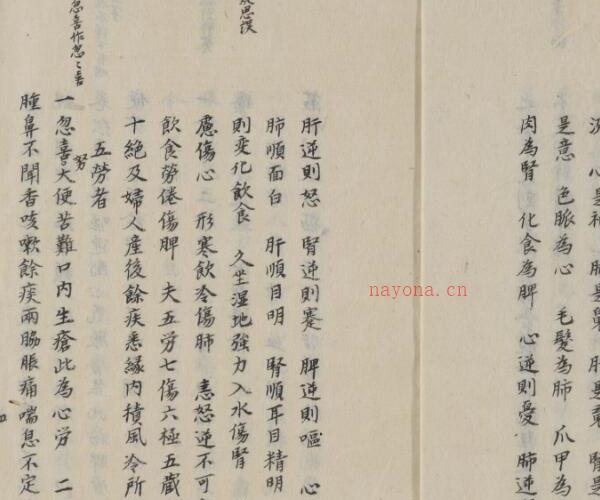 況 心是神 肺是
是意 色脈為心 毛髮為肺 爪甲為
肉為腎 化食為脾 心逆則憂 肺逆
肝逆則怒 腎逆則蹇 脾逆則嘔 心
肺順面白 肝順目明 腎順耳目精明
則変化飲食 久坐湿地強力入水傷腎
慮傷心 形寒飲冷傷肺 恚怒逆不可
飲食勞倦傷脾 夫五労七傷六極五蔵
十絶及婦人産後餘疾悉縁内積風冷所
五勞者
一忽喜大便苦難口内生瘡此為心労 二
努
腫鼻不聞香咳嗽餘痰兩脇脹痛喘息不定
思誤
忽喜作忽々喜
nayona.cn